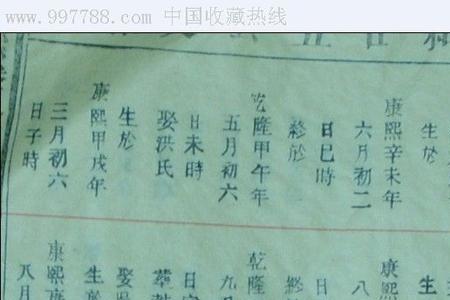 www.997788.com 中国收藏热线
生於
康熙辛未年
六月初二
日巳時
終於
乾隆甲午年
五月初六
日未時
娶洪氏
生於
康熙甲戌年
三月初六
日子時
生
康熙
八
日
終
乾隆
九
日
娶
生
康熙
八月